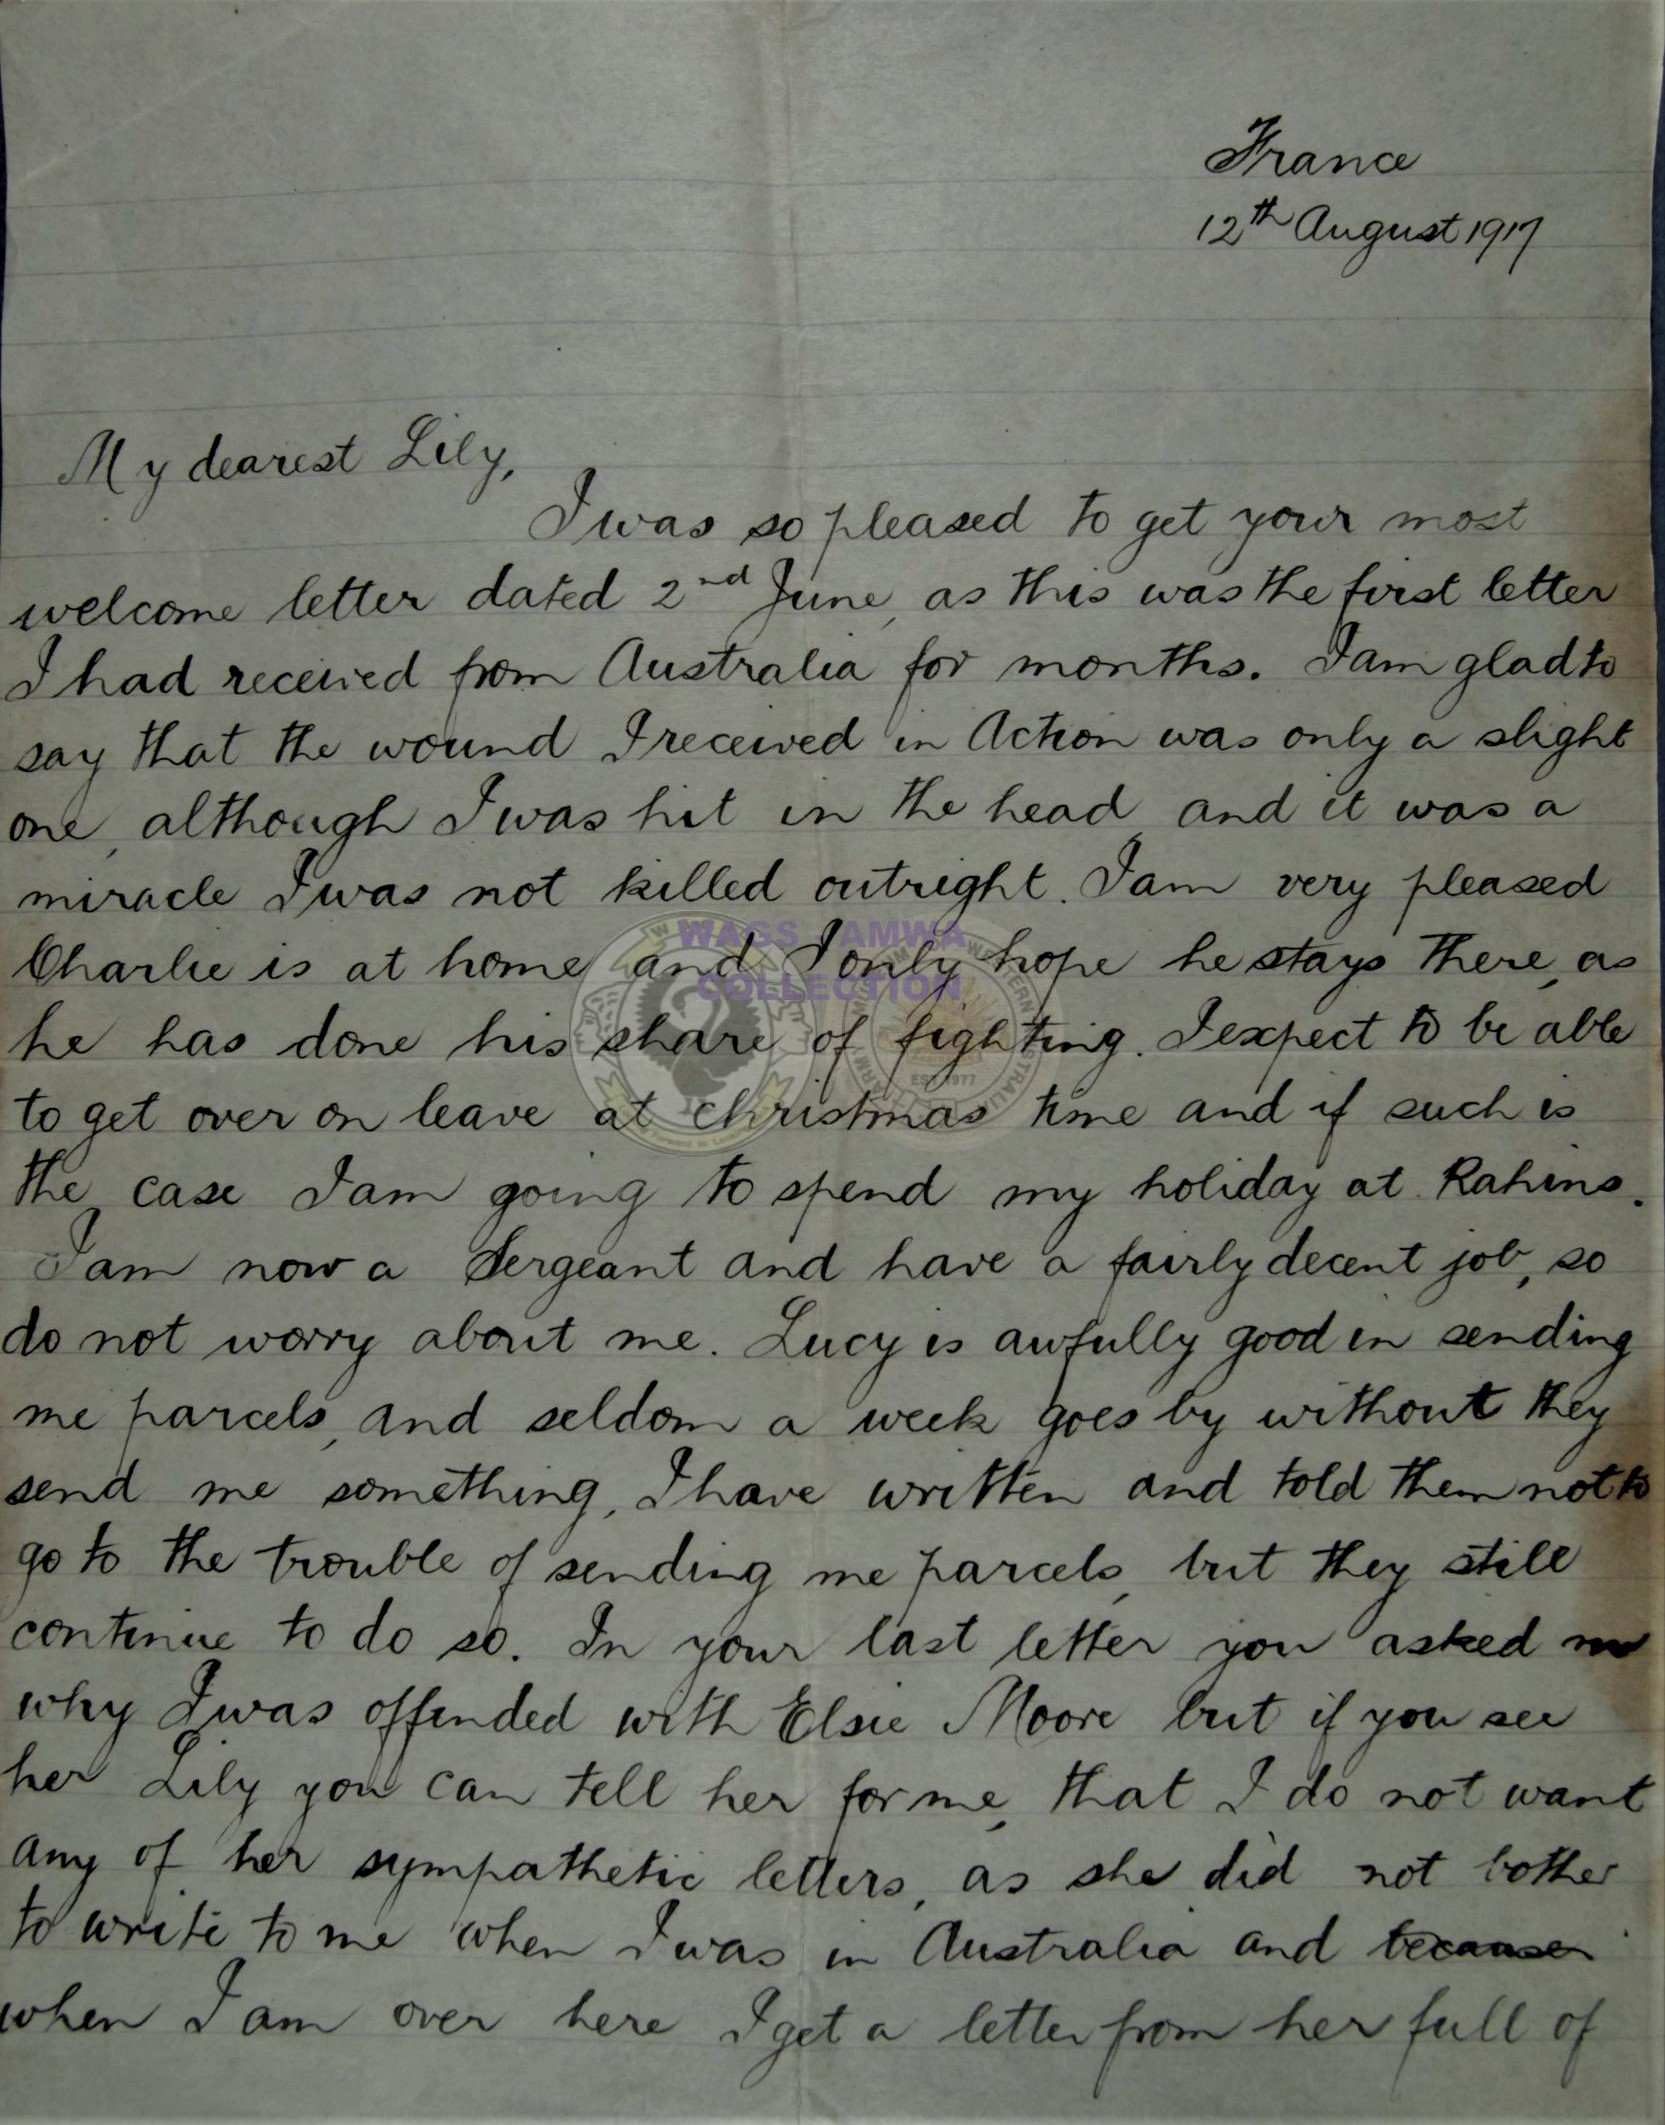 France
12th August 1917
My dearest Lily,
I was so pleased to get your most
welcome letter dated 2nd June, as this was the first letter
I had received from Australia for months. I am glad to
say that the wound I received in Action was only a slight
one, although I was hit in the head, and it was a
miracle I was not killed outright. I am very pleased
Charlie is at home and I only hope he stays there, as
he has done his share of fighting. I expect to be able
to get over on leave at christmas time and if such is
the case I am going to spend my holiday at Rahins.
I am now a Sergeant and have a fairly decent job, so
do not worry about me. Lucy is awfully good in sending
me parcels, and seldom a week goes by without they
send me something, I have written and told them not to
go to the trouble of sending me parcels, but they still
continue to do so. In your last letter you asked me
why I was offended with Elsie Moore but if you see
her Lily you can tell her for me, that I do not want
any of her sympathetic letters, as she did not bother
to write to me when I was in Australia and because
when I am over here I get a letter from her full of
WAGS / AMWA
COLLECTION
EST 1977